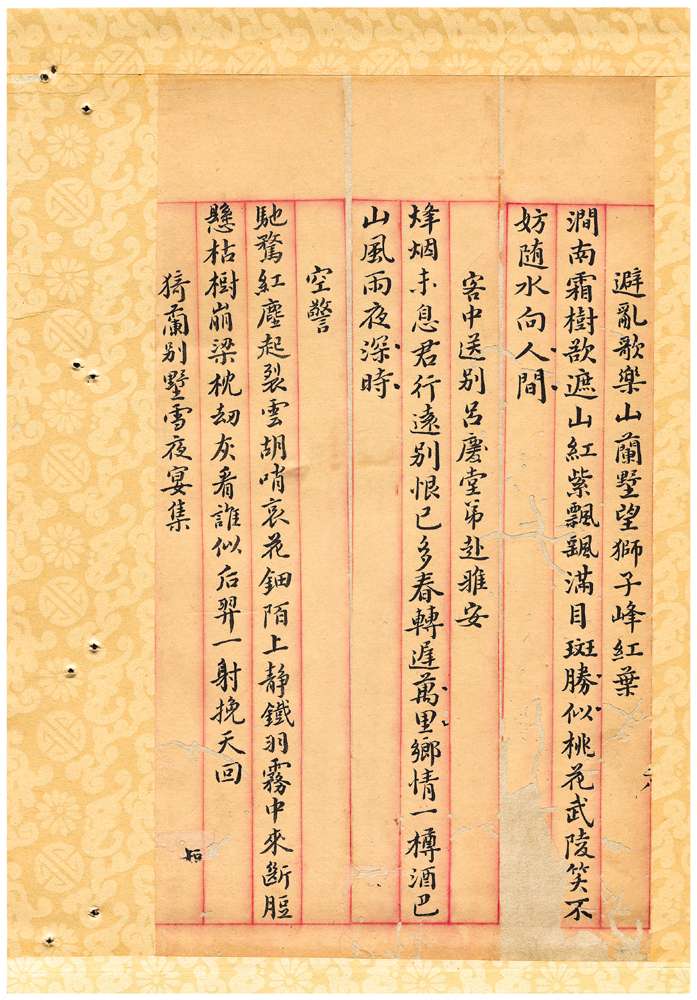 避亂歌樂山蘭墅望獅子峰紅葉
澗南霜樹欲遮山紅紫飄飄滿目斑勝似桃花武陵笑不
妨随水向人間
客中送别呂慶堂弟赴雅安
烽烟未息君行遠别恨已多春轉遲萬里鄉情一樽酒巴
山風雨夜深時
空警
馳騖紅塵起裂雲胡哨哀花鈿陌上静鐵羽霧中來斷脰
懸枯樹崩梁枕劫灰看誰似后羿一射挽天回
猗蘭别墅雪夜宴集